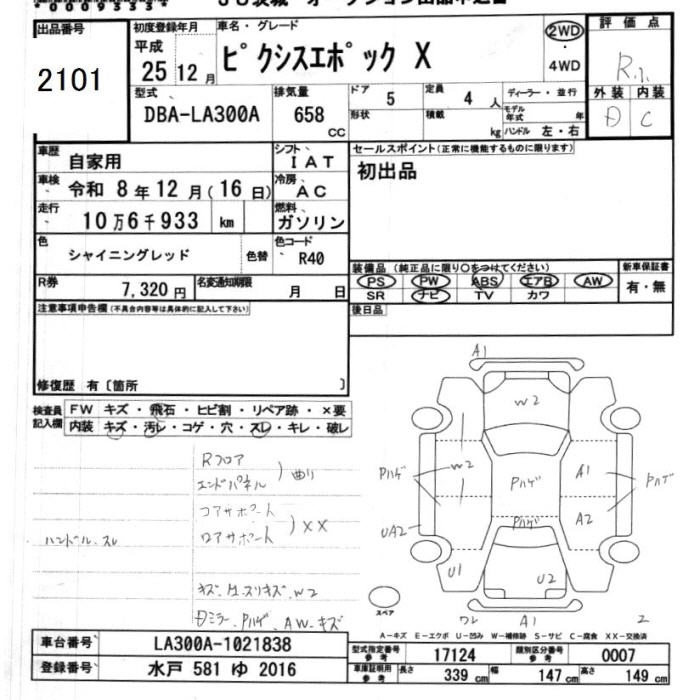 00093354
JU茨城 オークション出品申込書
出品番号
2101
初度登録年月
平成
25 12月
車名・グレード
ピクシスエポック X
2WD
・
4WD
評価点
R.1
外装 内装
D C
型式
DBA-LA300A
排気量
658
cc
ドア
5
定員
4 人
形状
積載
kg
ディーラー・並行
モデル年式 年
ハンドル 左・右
車歴
自家用
シフト
IAT
車検
令和 8年 12月(16日)
冷房
AC
走行
10万6千933 km
燃料
ガソリン
色
シャイニングレッド
色替
色コード
R40
R券
7,320円
名変通知期限
月 日
セールスポイント(正常に機能するものに限ります)
初出品
装備品(純正品に限り○をつけてください)
PS PW ABS エアB AW
SR ナビ TV カワ
新車保証書
有・無
後日品
注意事項申告欄(不具合内容等は具体的に記入して下さい)
修復歴 有〔箇所 〕
検査員記入欄
FW キズ・飛石・ヒビ割・リペア跡・×要
内装 キズ・汚レ・コゲ・穴・スレ・キレ・破レ
Rフロア
エンドパネル
曲り
コアサポート
ロアサポート
XX
ハンドル.スレ
キズ.W2
Dミラー.Pハゲ.AW.キズ
A1
W2
Pハゲ
W2
Pハゲ
A1
Pハゲ
Pハゲ
A2
UA2
U1
U2
スペア
A1
2
A-キズ E-エクボ U-凹み W-補修跡 S-サビ C-腐食 XX-交換済
車台番号
LA300A-1021838
登録番号
水戸 581 ゆ 2016
型式指定番号
参考
17124
類別区分番号
参考
0007
車庫証明用
参考
長さ
339 cm
幅
147 cm
高さ
149 cm